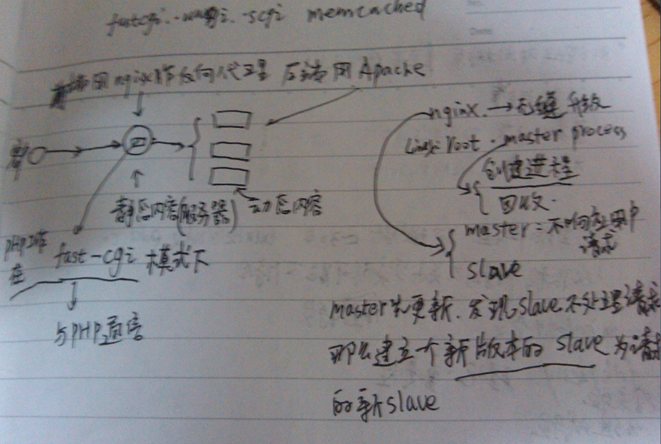 fastcgi. -uwsgi. -scgi memcached
前端用nginx作反向代理 后端用Apache
静态内容(服务器) 动态内容
PHP工作在 fast-cgi 模式下
与PHP通信
nginx. → 无缝升级
Linux root. master process
创建进程
回收.
master: 不响应用户请求
slave
master先更新. 发现slave不处理请求
那么建立一个新版本的 slave 为请求
的新slave